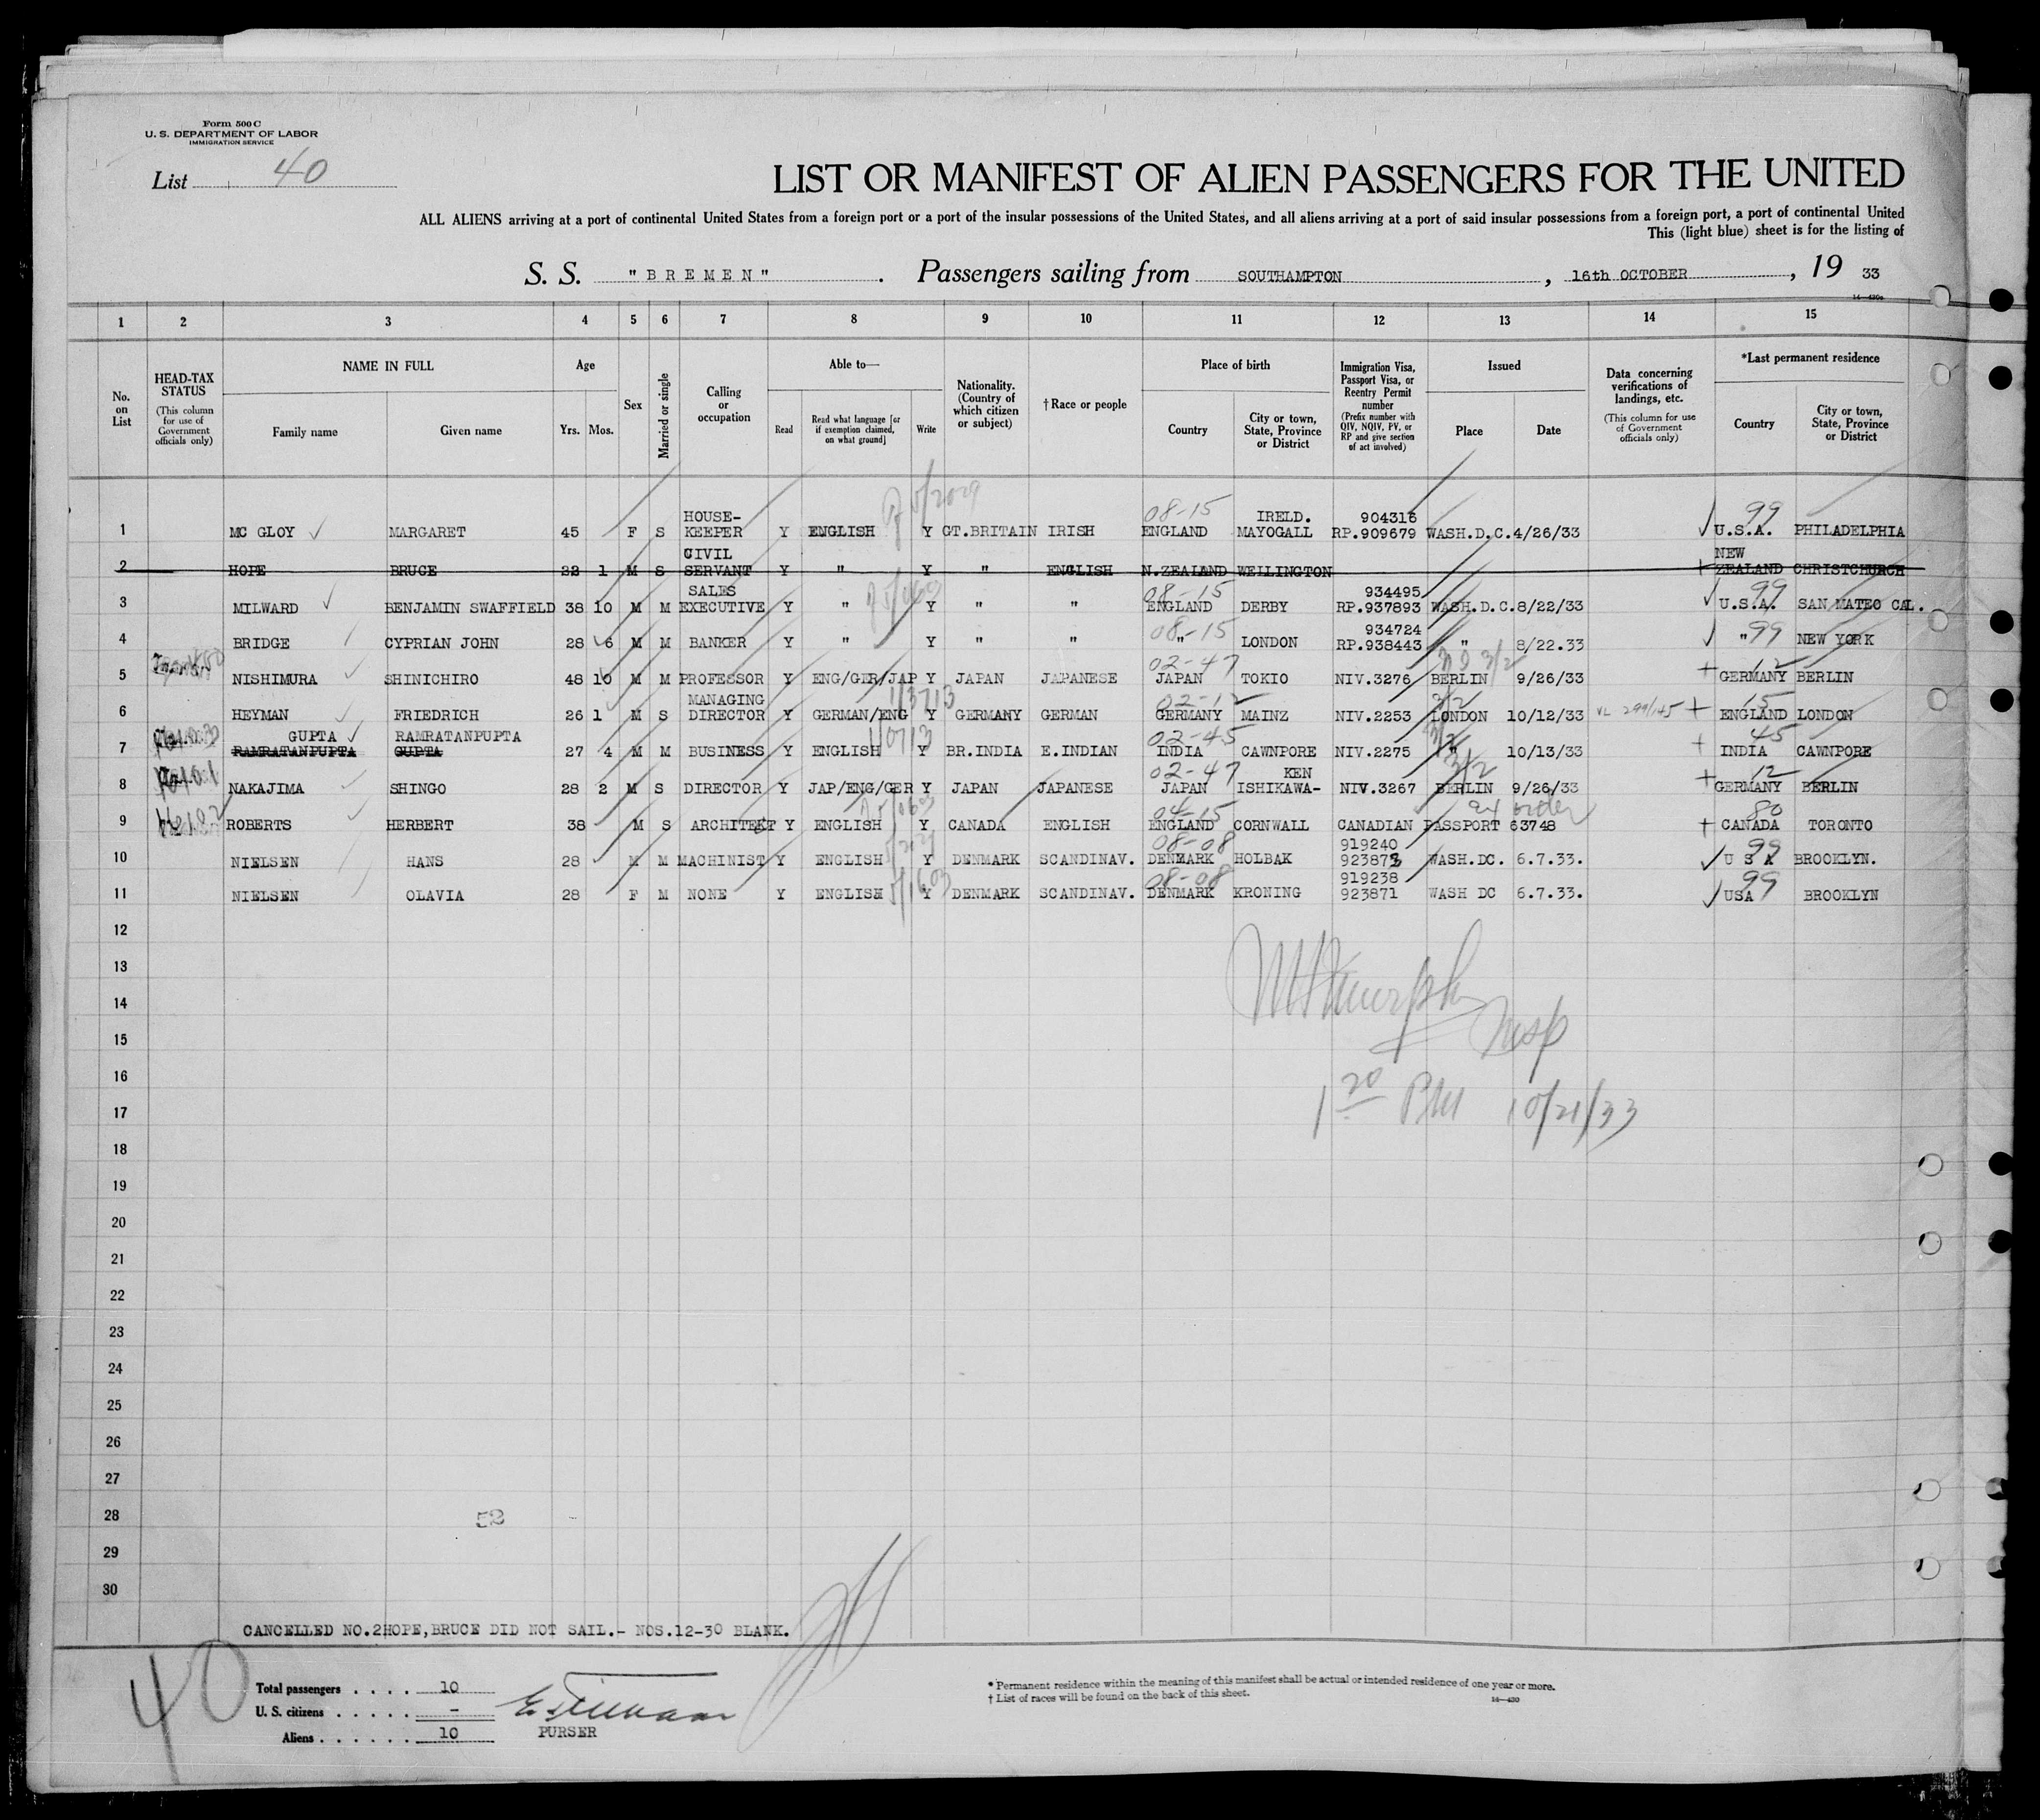 Form 500 C
U. S. DEPARTMENT OF LABOR
IMMIGRATION SERVICE
List 40
LIST OR MANIFEST OF ALIEN PASSENGERS FOR THE UNITED
ALL ALIENS arriving at a port of continental United States from a foreign port or a port of the insular possessions of the United States, and all aliens arriving at a port of said insular possessions from a foreign port, a port of continental United
This (light blue) sheet is for the listing of
S. S. "BREMEN" . Passengers sailing from SOUTHAMPTON , 16th OCTOBER , 19 33
14—430a
1 2 3 4 5 6 7 8 9 10 11 12 13 14 15
No. on List
HEAD-TAX STATUS (This column for use of Government officials only)
NAME IN FULL
Family name Given name
Age
Yrs. Mos.
Sex
Married or single
Calling or occupation
Able to—
Read Read what language [or if exemption claimed, on what ground] Write
Nationality. (Country of which citizen or subject)
†Race or people
Place of birth
Country City or town, State, Province or District
Immigration Visa, Passport Visa, or Reentry Permit number (Prefix number with QIV, NQIV, PV, or RP and give section of act involved)
Issued
Place Date
Data concerning verifications of landings, etc. (This column for use of Government officials only)
*Last permanent residence
Country City or town, State, Province or District
HOUSE- 08-15 IRELD. 904316 99
1 MC GLOY MARGARET 45 F S KEEPER Y ENGLISH Y GT.BRITAIN IRISH ENGLAND MAYOGALL RP.909679 WASH.D.C. 4/26/33 U.S.A. PHILADELPHIA
CIVIL NEW
2 HOPE BRUCE 32 1 M S SERVANT Y " Y " ENGLISH N.ZEALAND WELLINGTON ZEALAND CHRISTCHURCH
SALES 08-15 934495 99
3 MILWARD BENJAMIN SWAFFIELD 38 10 M M EXECUTIVE Y " Y " " ENGLAND DERBY RP.937893 WASH.D.C. 8/22/33 U.S.A. SAN MATEO CAL.
08-15 934724
4 BRIDGE CYPRIAN JOHN 28 6 M M BANKER Y " Y " " " LONDON RP.938443 " 8/22.33 " 99 NEW YORK
02-47 3/2 12
5 NISHIMURA SHINICHIRO 48 10 M M PROFESSOR Y ENG/GER/JAP Y JAPAN JAPANESE JAPAN TOKIO NIV.3276 BERLIN 9/26/33 GERMANY BERLIN
MANAGING 02-12 3/2 15
6 HEYMAN FRIEDRICH 26 1 M S DIRECTOR Y GERMAN/ENG Y GERMANY GERMAN GERMANY MAINZ NIV.2253 LONDON 10/12/33 VL 299/145 ENGLAND LONDON
GUPTA RAMRATANPUPTA 02-45 3/2 45
7 RAMRATANPUPTA GUPTA 27 4 M M BUSINESS Y ENGLISH Y BR.INDIA E.INDIAN INDIA CAWNPORE NIV.2275 " 10/13/33 INDIA CAWNPORE
02-47 KEN 3/2 12
8 NAKAJIMA SHINGO 28 2 M S DIRECTOR Y JAP/ENG/GER Y JAPAN JAPANESE JAPAN ISHIKAWA- NIV.3267 BERLIN 9/26/33 GERMANY BERLIN
04-15 Ex order 80
9 ROBERTS HERBERT 38 M S ARCHITEKT Y ENGLISH Y CANADA ENGLISH ENGLAND CORNWALL CANADIAN PASSPORT 63748 CANADA TORONTO
08-08 919240 99
10 NIELSEN HANS 28 M M MACHINIST Y ENGLISH Y DENMARK SCANDINAV. DENMARK HOLBAK 923873 WASH.DC. 6.7.33. U S A BROOKLYN.
08-08 919238 99
11 NIELSEN OLAVIA 28 F M NONE Y ENGLISH Y DENMARK SCANDINAV. DENMARK KRONING 923871 WASH DC 6.7.33. USA BROOKLYN
12
13
14
15
Insp
16
17
1 20 PM 10/21/33
18
19
20
21
22
23
24
25
26
27
28
52
29
30
CANCELLED NO.2HOPE,BRUCE DID NOT SAIL.- NOS.12-30 BLANK.
40
Total passengers . . . . 10
U. S. citizens . . . . . -
Aliens . . . . . . 10
PURSER
* Permanent residence within the meaning of this manifest shall be actual or intended residence of one year or more.
† List of races will be found on the back of this sheet.
14—430